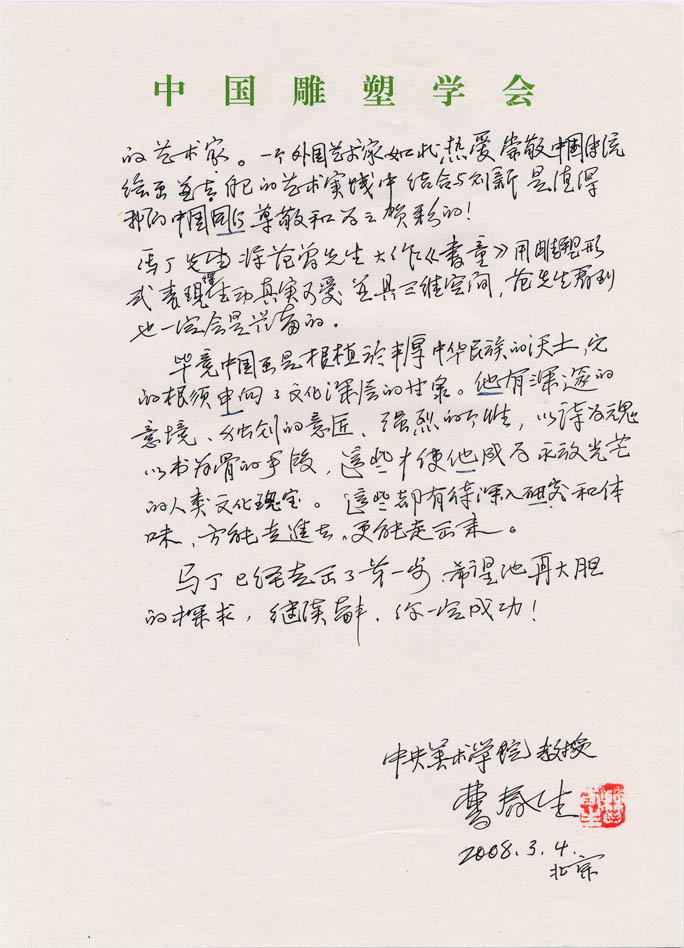 中国雕塑学会
的艺术家。一个外国艺术家如此热爱崇敬中国传统
绘画并在自己的艺术实践中结合与创新是值得
我们中国同行尊敬和为之贺彩的！
马丁先生将范曾先生大作《书童》用雕塑形
式表现得生动真实可爱并具三维空间，范先生看到
也一定会是兴奋的。
毕竟中国画是根植於丰厚中华民族的沃土，它
的根须伸向了文化深层的甘泉。他有深邃的
意境、独创的意匠、强烈的个性，以诗为魂
以书为骨的手段，這些才使他成为永放光芒
的人类文化瑰宝。這些都有待深入研究和体
味，方能走進去，更能走出来。
马丁已经走出了第一步，希望他再大胆
的探求，继续奋斗，你一定成功！
中央美术学院教授
曹春生
2008.3.4.
北京